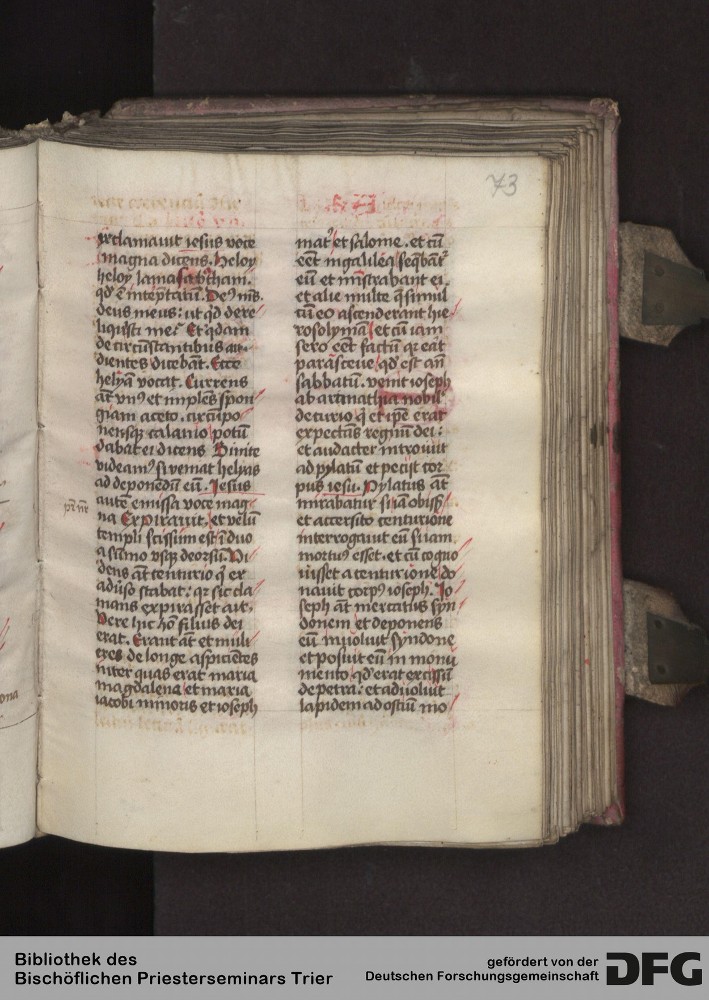 73
exclamauit iesus voce
magna dicens. Heloy
heloy lamasabtham.
qd' ē int̄ptatū. De9 ms̄.
deus meus: ut qd dere
liquisti me? Et q̇dam
de circūstantibus au
dientes dicebāt. Ecce
helyā vocat. Currens
āt vn9 et implēs spon
giam aceto. circūpo
nensqȝ calamo potū
dabat ei dicens Sinite
videam9 si veniat helyas
ad deponedū eū. Jesus
autē emissa voce mag
na Expirauit. et velū
templi scissum est ī duo
a sūmo vsqȝ deorsū. Vi
dens āt centurio q̇ ex
aduso stabat: qr sic cla
mans expirasset ait.
Vere hic hō filius dei
erat. Erant āt et muli
eres de longe aspiciētes
inter quas erat maria
magdalena et maria
iacobi minoris et ioseph
mat' et salome. et cū
eēt in galilea seq̄bāt'
eū et mīstrabant ei.
et alie multe q̄ simul
cū eo ascenderant hie
rosolymā et cū iam
sero eēt factū qr eāt
parasceue qd' est añ
sabbatū. venit ioseph
ab arimathia nobil'
decurio q̇ et ip̄e erat
expectās regnū dei:
et audacter introiuit
ad pylatū et peciit cor
pus iesu. Pylatus āt
mirabatur si iā obiss3
et accersito centurione
interrogauit eū si iam
mortu9 esset. et cū cogno
uisset a centurione do
nauit corp9 ioseph. Jo
seph āt mercatus syn
donem et deponens
eū inuoluit syndone
et posuit eū in monu
mento qd' erat excissū
de petra: et aduoluit
lapidem ad ostiū mo
Bibliothek des
Bischöflichen Priesterseminars Trier
gefördert von der
Deutschen Forschungsgemeinschaft
DFG